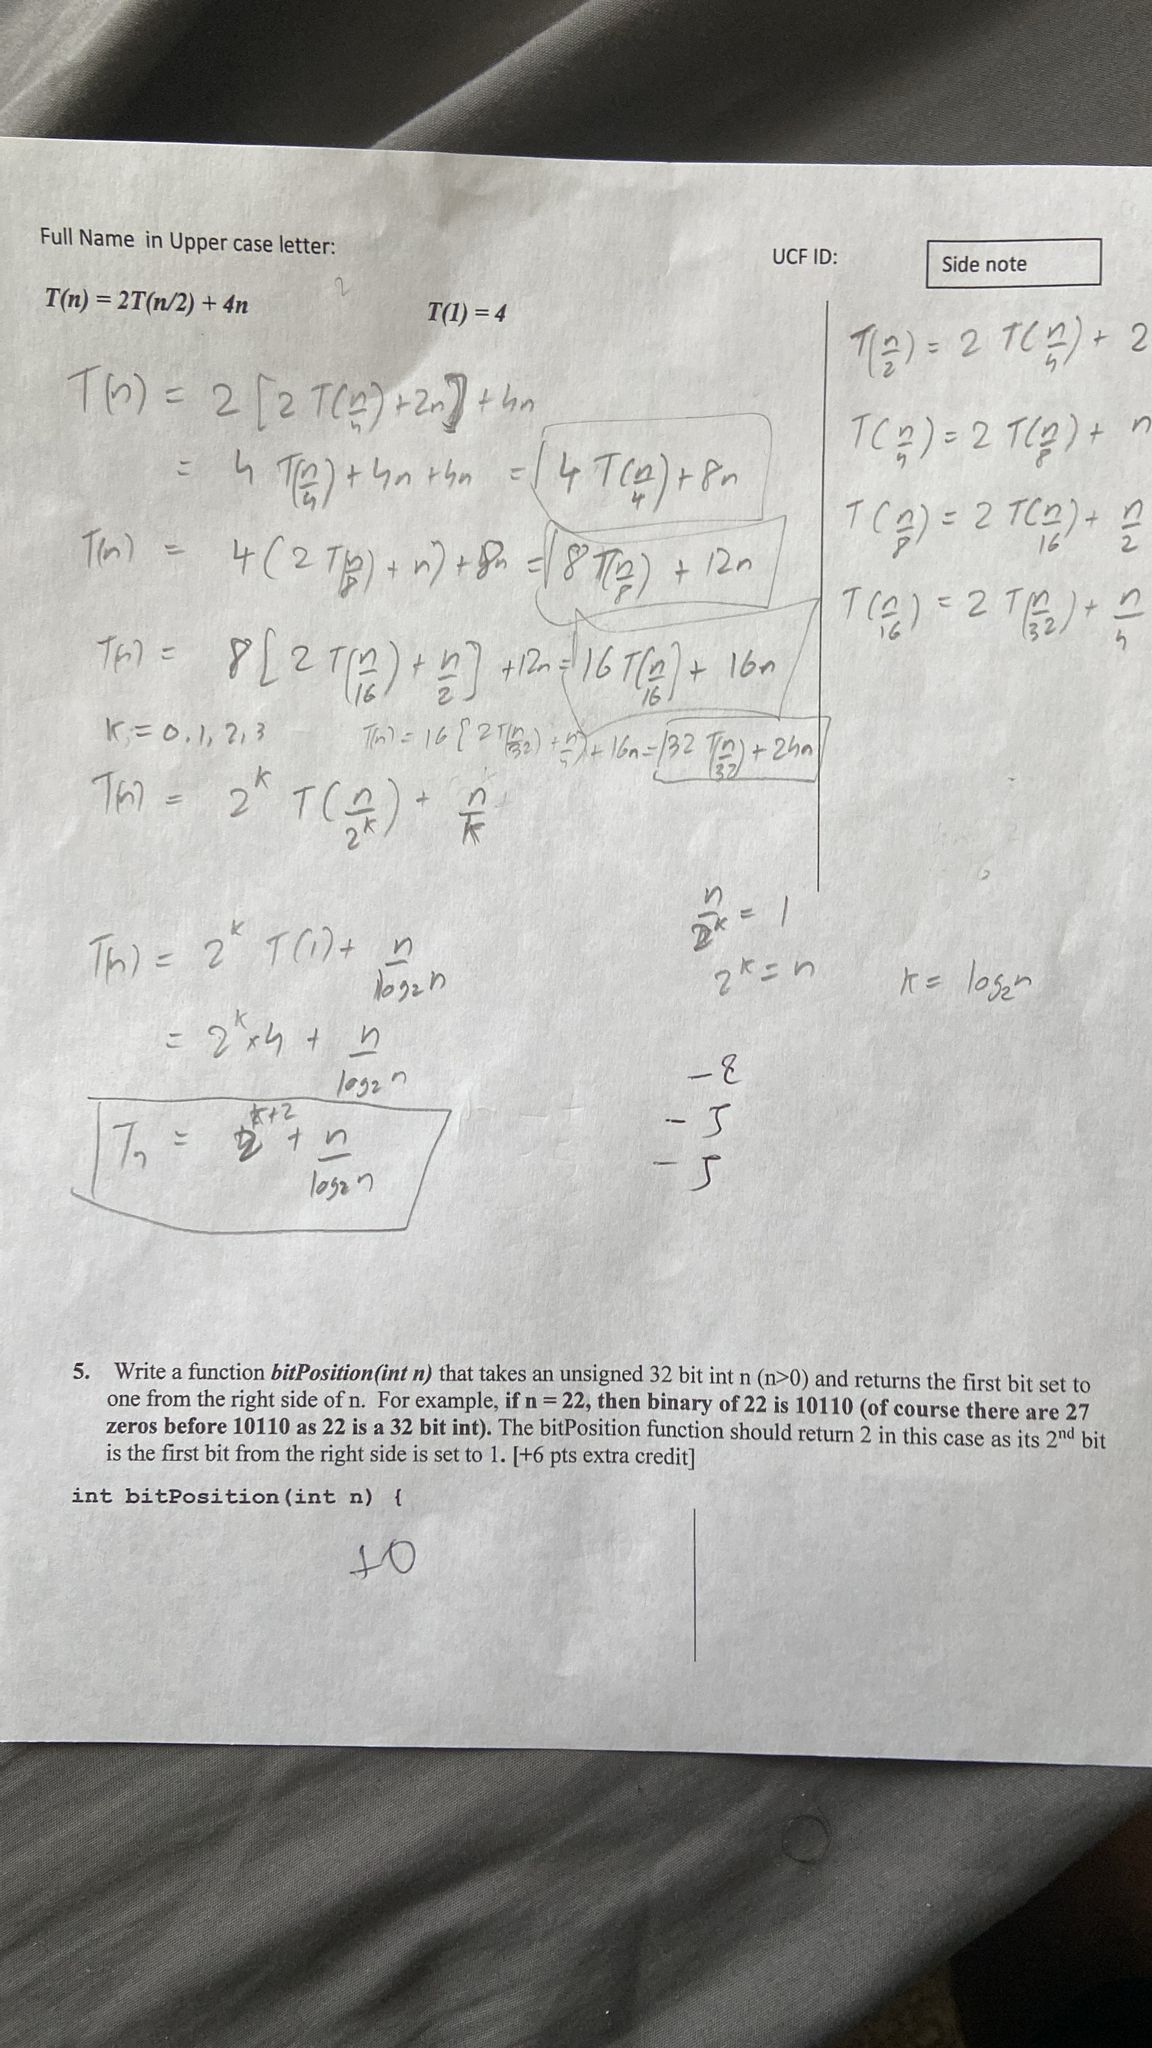 Full Name in Upper case letter:
UCF ID:
Side note
T(n) = 2T(n/2) + 4n
T(1) = 4
T(n) = 2 [2 T(n/4) + 2n] + 4n
= 4 T(n/4) + 4n + 4n = 4 T(n/4) + 8n
T(n) = 4 (2 T(n/8) + n) + 8n = 8 T(n/8) + 12n
T(n) = 8 [2 T(n/16) + n/2] + 12n = 16 T(n/16) + 16n
K = 0, 1, 2, 3
T(n) = 16 [2 T(n/32) + n/4] + 16n = 32 T(n/32) + 24n
T(n) = 2^k T(n/2^k) + n/k
T(n/2) = 2 T(n/4) + 2
T(n/4) = 2 T(n/8) + n
T(n/8) = 2 T(n/16) + n/2
T(n/16) = 2 T(n/32) + n/4
n/2^k = 1
2^k = n
k = log₂n
T(n) = 2^k T(1) + n/log₂n
= 2^k × 4 + n/log₂n
Tn = 2^(k+2) + n/log₂n
-8
-5
-5
5. Write a function bitPosition(int n) that takes an unsigned 32 bit int n (n>0) and returns the first bit set to
one from the right side of n. For example, if n = 22, then binary of 22 is 10110 (of course there are 27
zeros before 10110 as 22 is a 32 bit int). The bitPosition function should return 2 in this case as its 2nd bit
is the first bit from the right side is set to 1. [+6 pts extra credit]
int bitPosition(int n) {
+0